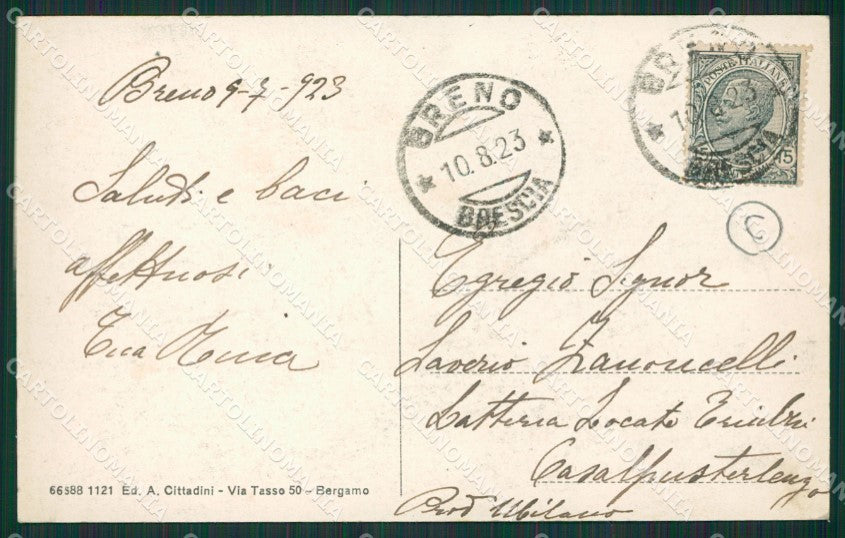 Breno 9-7-923
Saluti e baci
affettuosi
Tua
66588 1121 Ed. A. Cittadini - Via Tasso 50 - Bergamo
BRENO
10.8.23
BRESCIA
BRENO
10.8.23
BRESCIA
POSTE ITALIANE
15
C
Egregio Signor
Saverio Zanoncelli
Latteria Locate Triulzi
Casalpusterlengo
Prov Milano
CARTOLINOMANIA